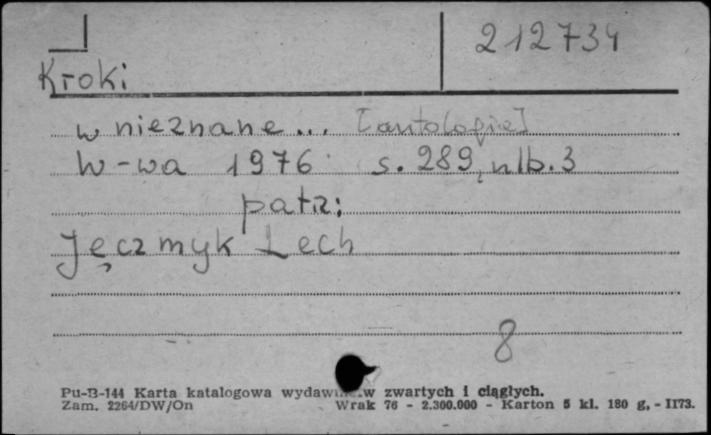 212734
Kroki
w nieznane... [antologie]
W-wa 1976 s. 289, nlb. 3
patrz:
Jęczmyk Lech
8
Pu-B-144 Karta katalogowa zwartych i ciągłych.
Zam. 2264/DW/On Wrak 76 - 2.300.000 - Karton 5 kl. 180 g, - II73.